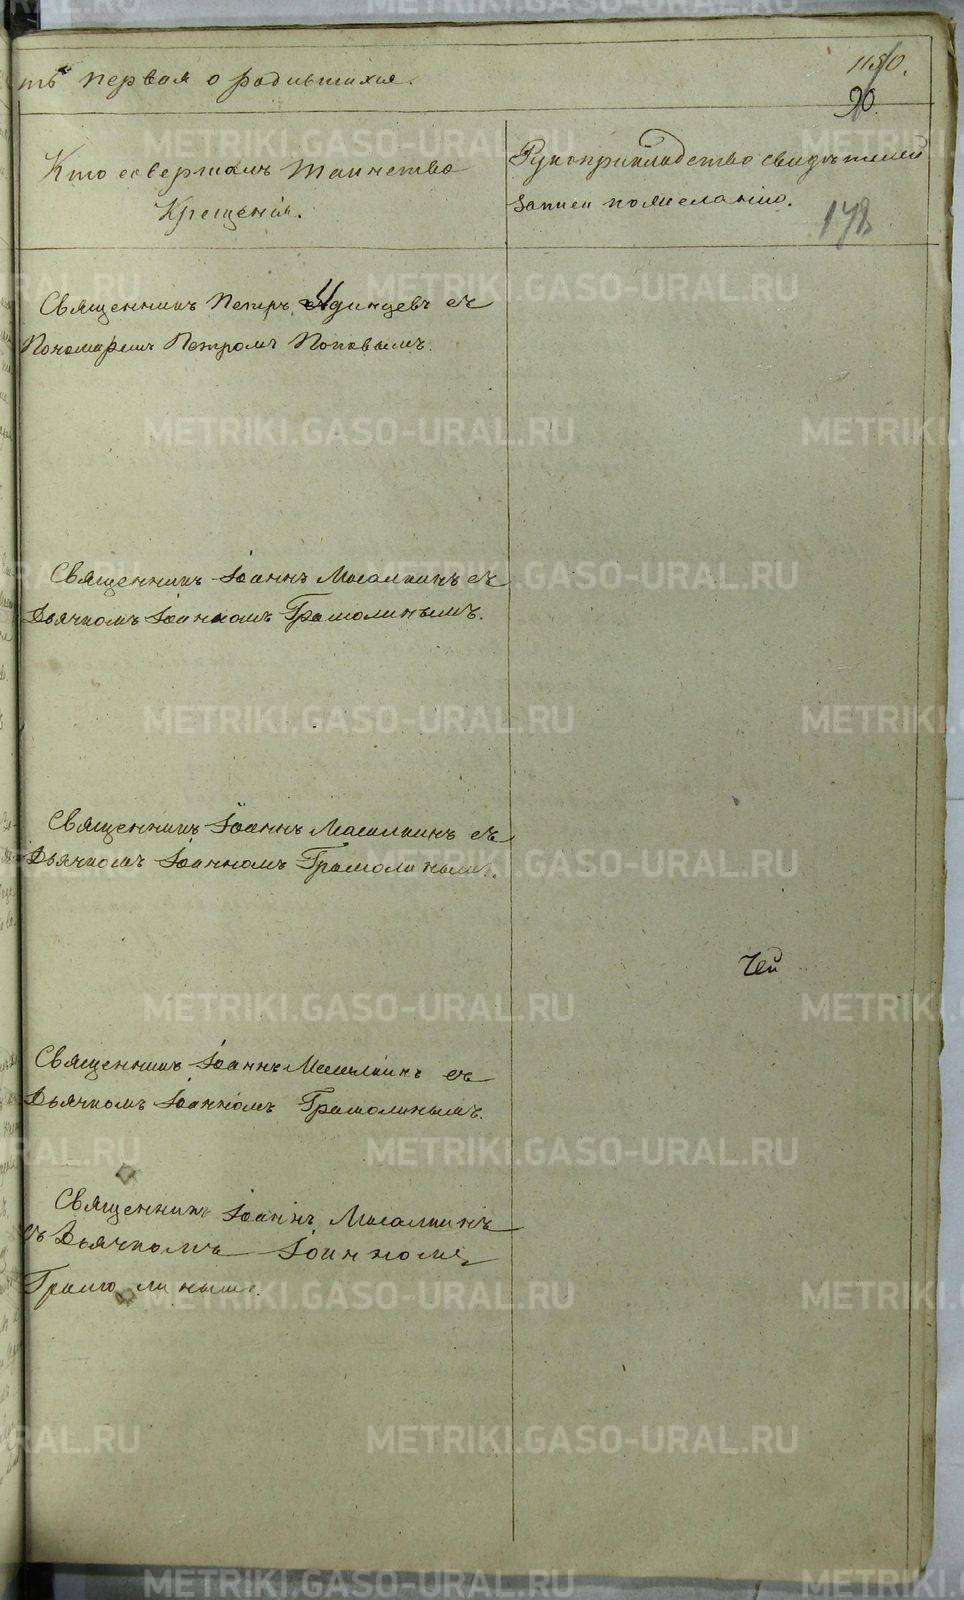 ть первая о родившихся.
1180.
90.
Кто совершалъ таинство
Крещенія.
Рукоприкладство свидѣтелей
записи по желанію.
178
Священникъ Петръ Удинцевъ съ
Пономаремъ Петромъ Поповымъ.
Священникъ Іоаннъ Масалкинъ съ
Дьячкомъ Іоанномъ Грамолинымъ.
Священникъ Іоаннъ Масалкинъ съ
Дьячкомъ Іоанномъ Грамолинымъ.
Чей
Священникъ Іоаннъ Масалкинъ съ
Дьячкомъ Іоанномъ Грамолинымъ.
Священникъ Іоаннъ Масалкинъ
съ Дьячкомъ Іоанномъ
Грамолинымъ.
METRIKI.GASO-URAL.RU